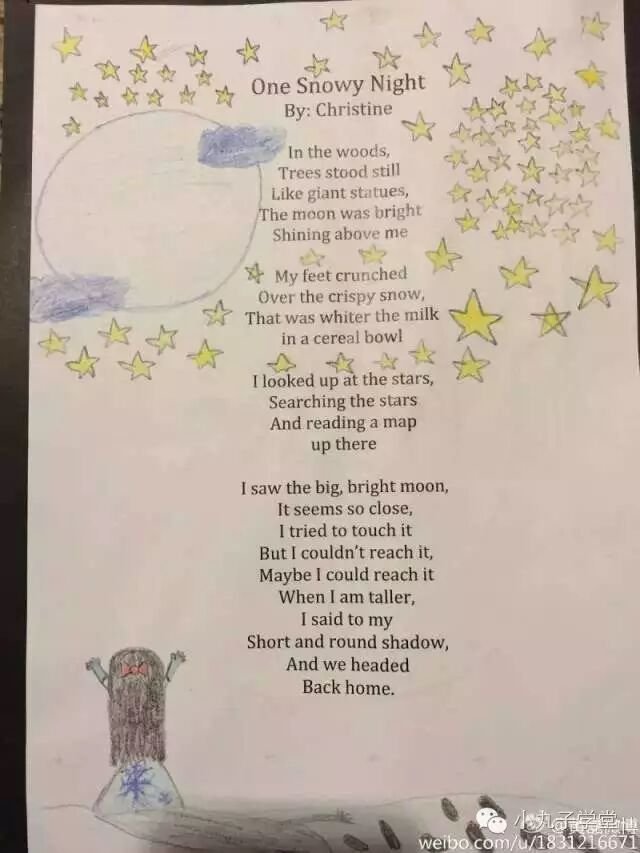 One Snowy Night
By: Christine
In the woods,
Trees stood still
Like giant statues,
The moon was bright
Shining above me
My feet crunched
Over the crispy snow,
That was whiter the milk
in a cereal bowl
I looked up at the stars,
Searching the stars
And reading a map
up there
I saw the big, bright moon,
It seems so close,
I tried to touch it
But I couldn't reach it,
Maybe I could reach it
When I am taller,
I said to my
Short and round shadow,
And we headed
Back home.
小丸子学堂
微博
weibo.com/u/1831216671